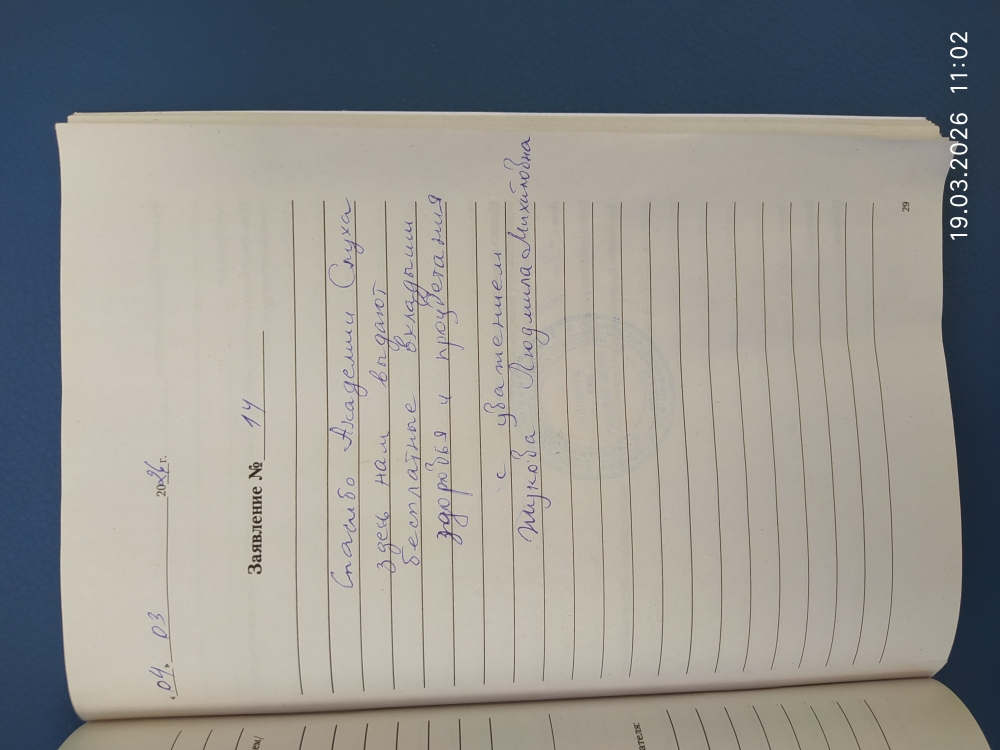 04. 03 2026 г.
Заявление № 14
Спасибо Академии Слуха
здесь нам выдают
бесплатные вкладыши
здоровья и процветания
с уважением
Жукова Людмила Михайловна
29
19.03.2026 11:02